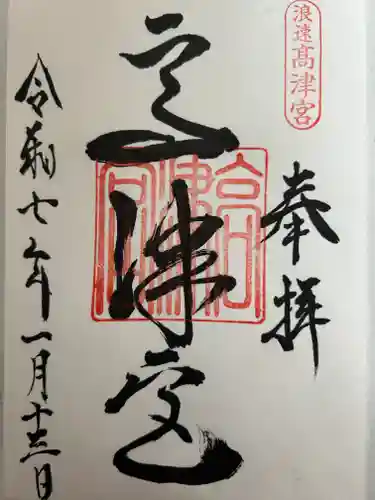 浪速高津宮
奉拝
高津宮
高津宮
令和七年一月十三日